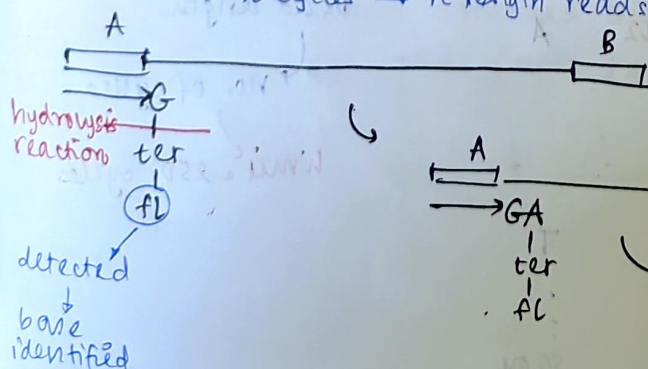 cycles → n length reads
A
B
G
hydrolysis
reaction
ter
fl
detected
base
identified
A
GA
ter
fl